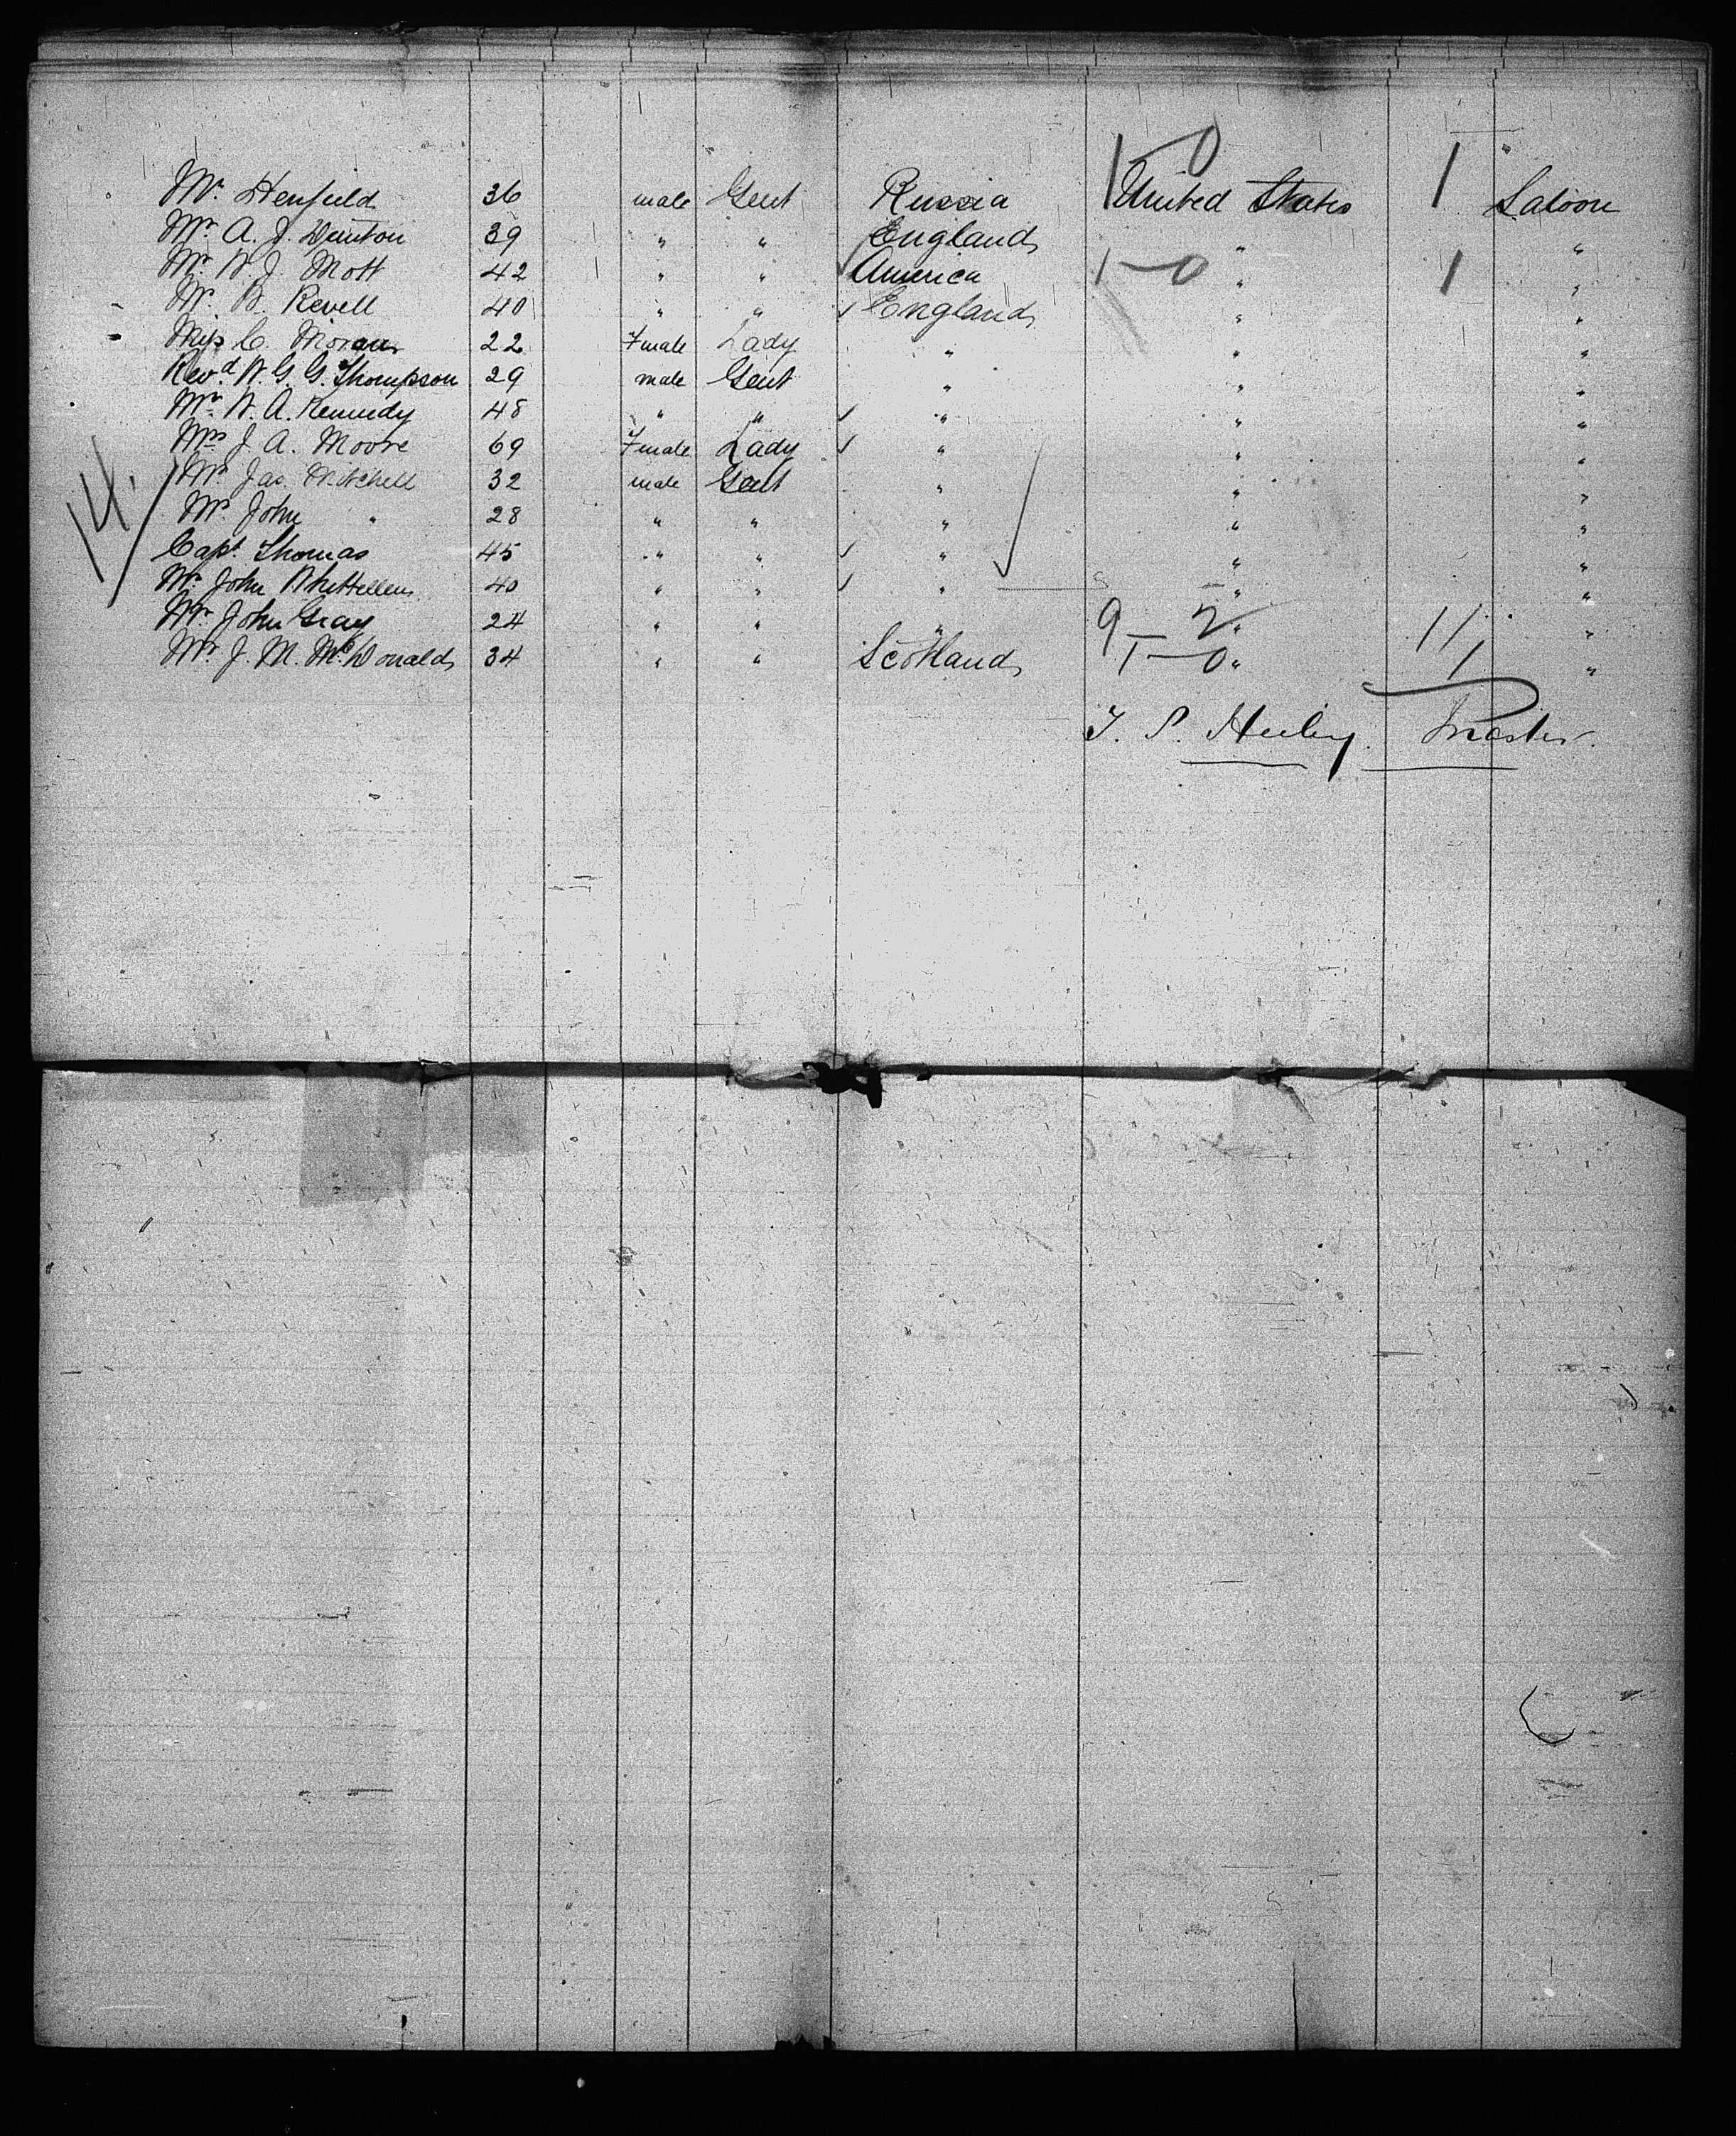 1-0
Mr. Henfield 36 male Gent Russia United States 1 Saloon
Mr. A. J. Winton 39 " " England " "
Mr. W. J. Mott 42 " " America 1-0 " 1 "
Mr. B. Revell 40 " " ✓ England " "
Miss C. Moran 22 Female Lady " " "
Revd. W. G. G. Thompson 29 male Gent " " "
Mr. W. A. Kennedy 48 " " ✓ " " "
Mrs J. A. Moore 69 Female Lady ✓ " " "
14. Mr. Jas. Mitchell 32 male Gent " " "
Mr. John " 28 " " " " "
Capt. Thomas 45 " " ✓ " " "
Mr. John 40 " " ✓ " " "
Mr. John Gray 24 " " " 9-2 " 11 "
Mr. J. M. McDonald 34 " " Scotland 1-0 " 1 "
T. P. Master.